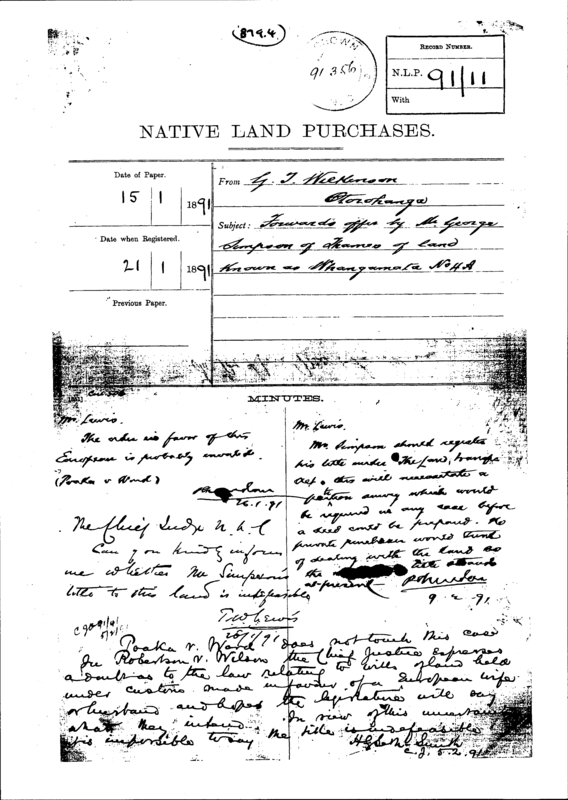 (879.4)
CROWN
91 356
RECORD NUMBER.
N.L.P. 91/11
With
NATIVE LAND PURCHASES.
Date of Paper.
15 | 1 | 1891
Date when Registered.
21 | 1 | 1891
Previous Paper.
From G. T. Wilkinson
Otorohanga
Subject: Forwards offer by Mr George
Simpson of Thames of land
Known as Whangamata No 4A
MINUTES.
Mr. Lewis.
The order in favor of this
European is probably invalid.
(Paaka v Ward)
26.1.91
The Chief Judge N.L.C
Can you kindly inform
me whether Mr Simpson's
title to this land is indefeasible
T W Lewis
26/1/91
Mr. Lewis.
Mr Simpson should register
his title under The Land Transfer
Act. this will necessitate a
partition survey which would
be required in any case before
a deed could be prepared. No
private purchaser would think
of dealing with the land so
the title stands
at present
9.2.91.
Paaka v. Ward does not touch this case
In Robertson v. Wilson the Chief Justice expresses
a doubt as to the law relating to wills of land held
under custom made in favour of a European wife
or husband and hopes the legislature will say
what they intend. In view of this uncertainty
it is impossible to say the title is indefeasible
C.J. 5.2.91